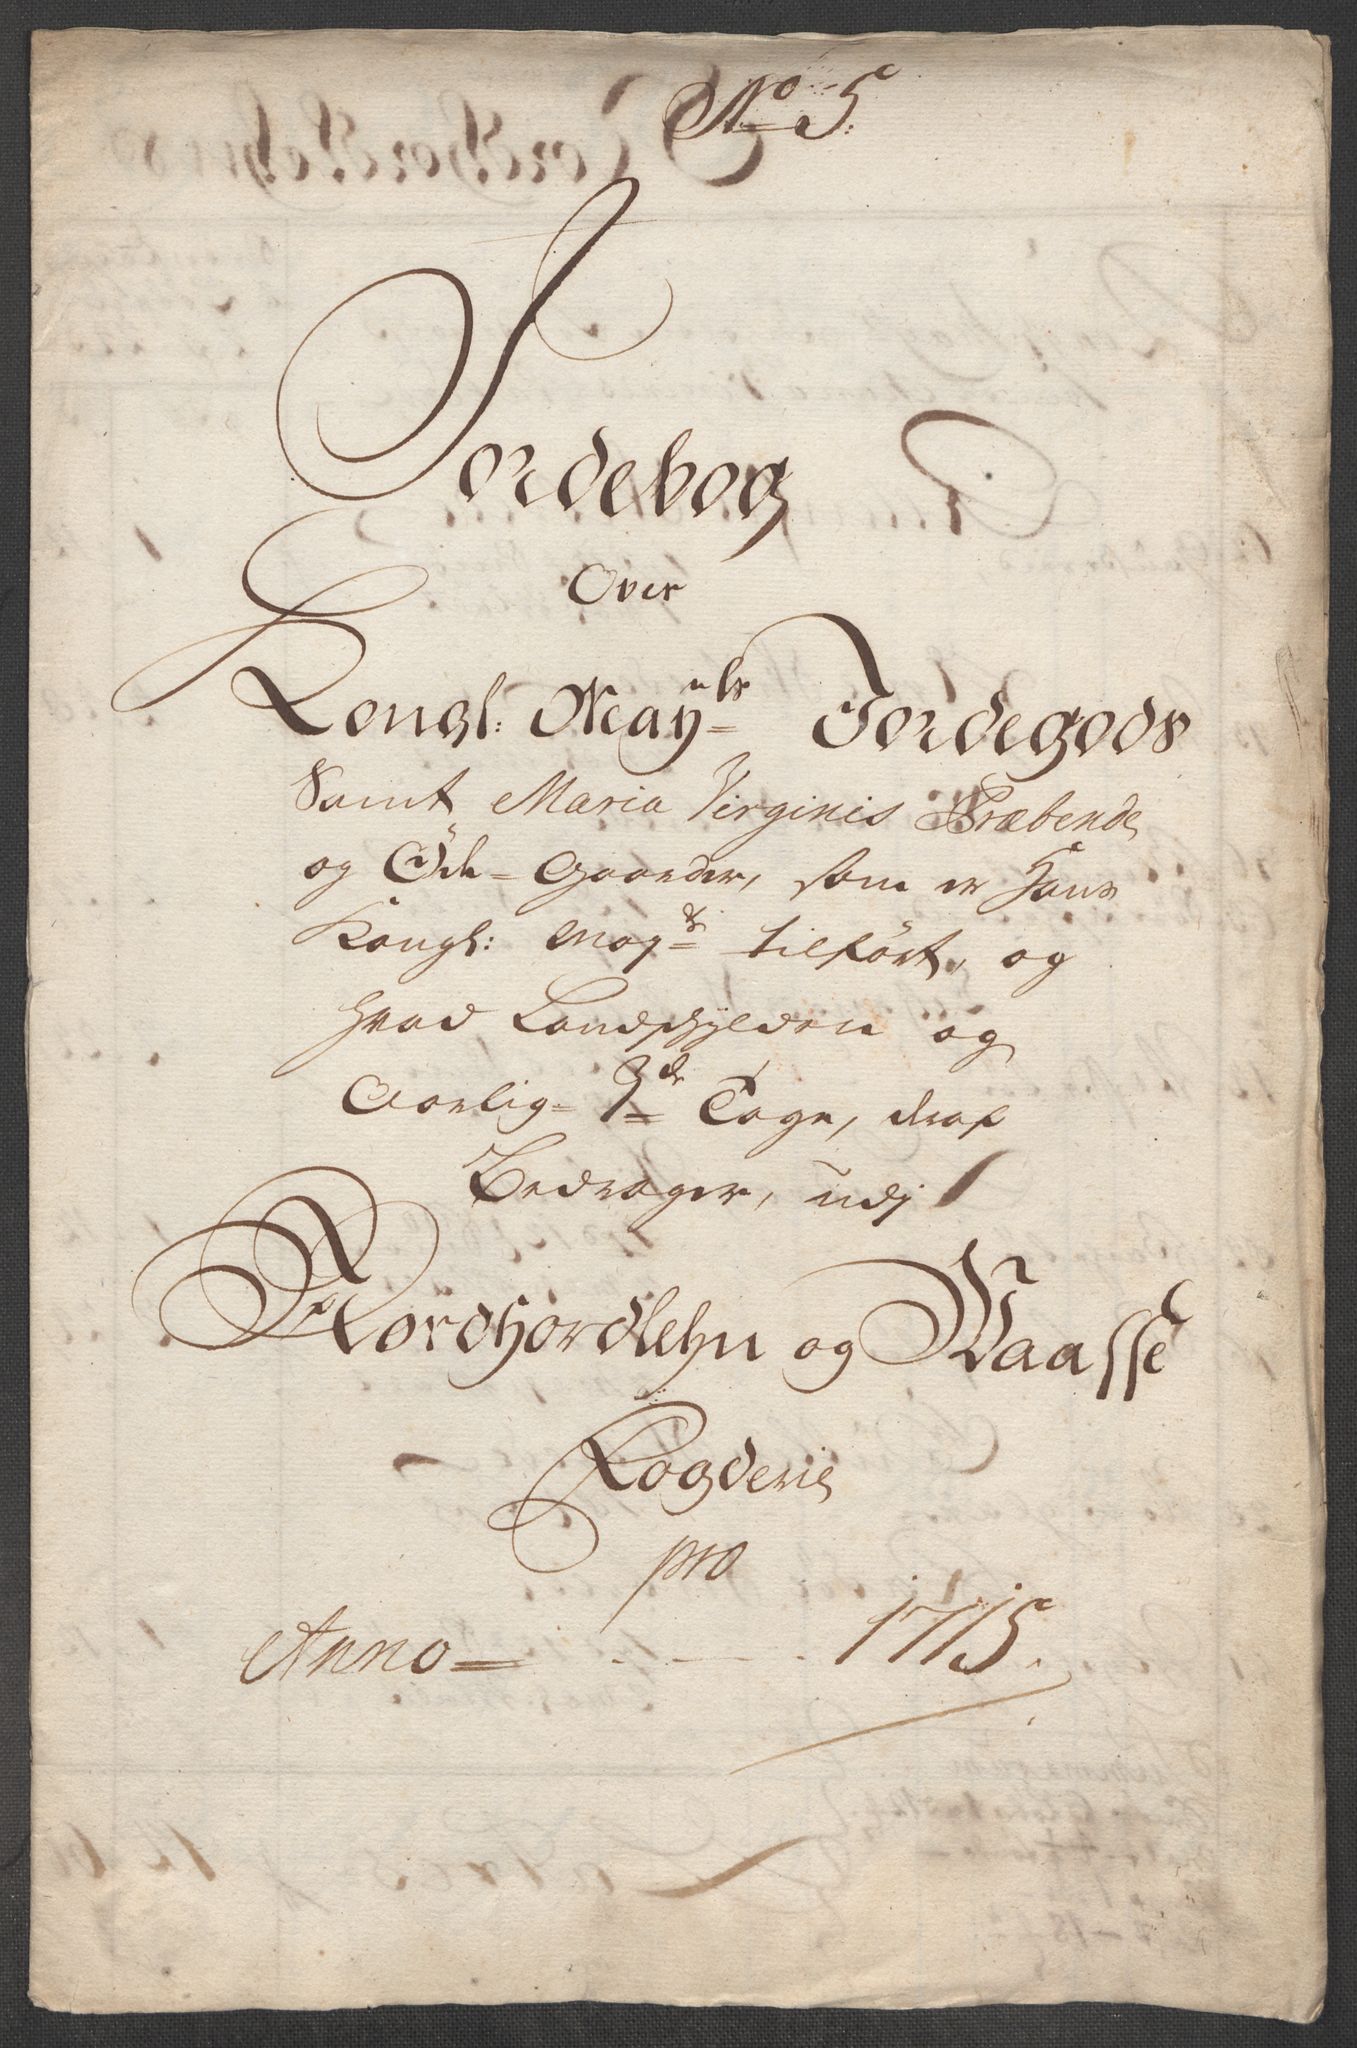 No 5.
Jordebog
Over
Kongl: Mayts Jordegods
Samt Maria Virginis Præbende
og Öde-Gaarder, som er Hans
Kongl: Mayts tilfört, og
hvad Landschylden og
Aarlig 3de Tage, deraf
Bedrager, udj
Nordhordlehn og Waasse
Fogderie
pro
Anno 1715.